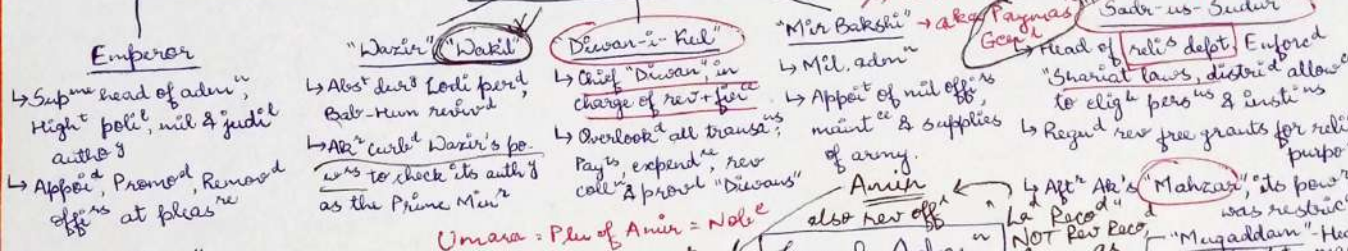 Emperor
↳ Sup^me head of adm^n,
High^t poli^l, mil & judi^l
autho^y
↳ Appoi^d, Promo^d, Remov^d
offi^rs at pleas^re
"Wazir" "Wakil"
↳ Abs^t dur^g Lodi per^d,
Bab-Hum reviv^d
↳ Ak^r curb^d Wazir's po-
wers to check its auth^y
as the Prime Min^r
"Diwan-i-Kul"
↳ Chief "Diwan", in
charge of rev +
↳ Overlook^d all transa^ns,
Pay^ts, expend^re, rev
coll^n & prov^l "Diwans"
"Mir Bakshi" → aka Paymas
Gen^l
↳ Mil. adm^n
↳ Appoi^t of mil offi^rs,
maint^ce & supplies
of army.
"Sadr-us-Sudur
↳ Head of relig dept, Enfor^d
"Shariat laws, distri^d allow
to elig^le pers^ns & insti^ns
↳ Regu^d rev free grants for reli
purpo
↳ Aft^r Ak's "Mahzar", its pow^r
was restric
Umara = Plu of Amir = Nob^le
Amin
also rev off^r
La^d Reco^d
NOT Rev Reco^d
"Muqaddam" - He